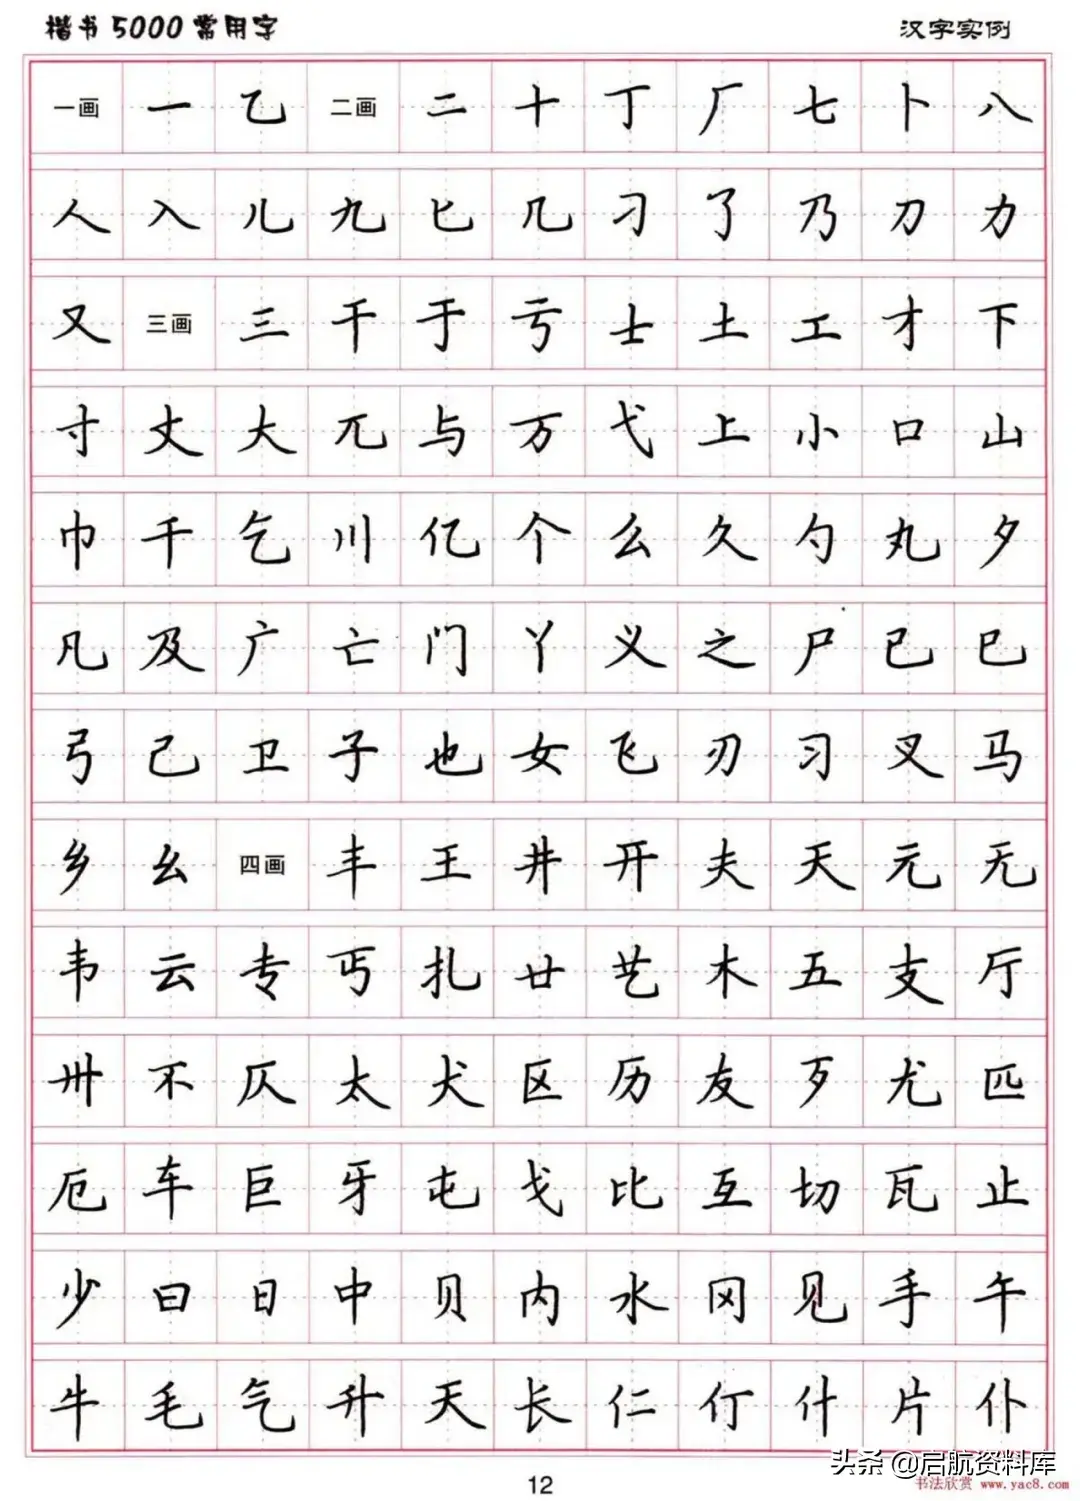 楷书5000常用字 汉字实例
一画 一 乙 二画 二 十 丁 厂 七 卜 八
人 入 儿 九 匕 几 刁 了 乃 刀 力
又 三画 三 干 于 亏 士 土 工 才 下
寸 丈 大 兀 与 万 弋 上 小 口 山
巾 千 乞 川 亿 个 么 久 勺 丸 夕
凡 及 广 亡 门 丫 义 之 尸 已 巳
弓 己 卫 子 也 女 飞 刃 习 叉 马
乡 幺 四画 丰 王 井 开 夫 天 元 无
韦 云 专 丐 扎 廿 艺 木 五 支 厅
卅 不 仄 太 犬 区 历 友 歹 尤 匹
厄 车 巨 牙 屯 戈 比 互 切 瓦 止
少 曰 日 中 贝 内 水 冈 见 手 午
牛 毛 气 升 夭 长 仁 仃 什 片 仆
头条 @启航资料库
12 书法欣赏 www.yac8.com